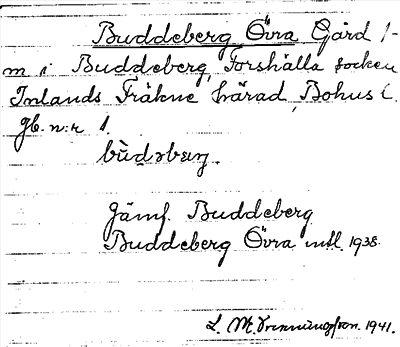 Buddeberg Övra Gård 1-
m i Buddeberg, Forshälla socken
Inlands Fräkne härad, Bohus l.
Jb. n:r 1.
Jämf. Buddeberg
Buddeberg Övra intl. 1938.
L. M. 1941.